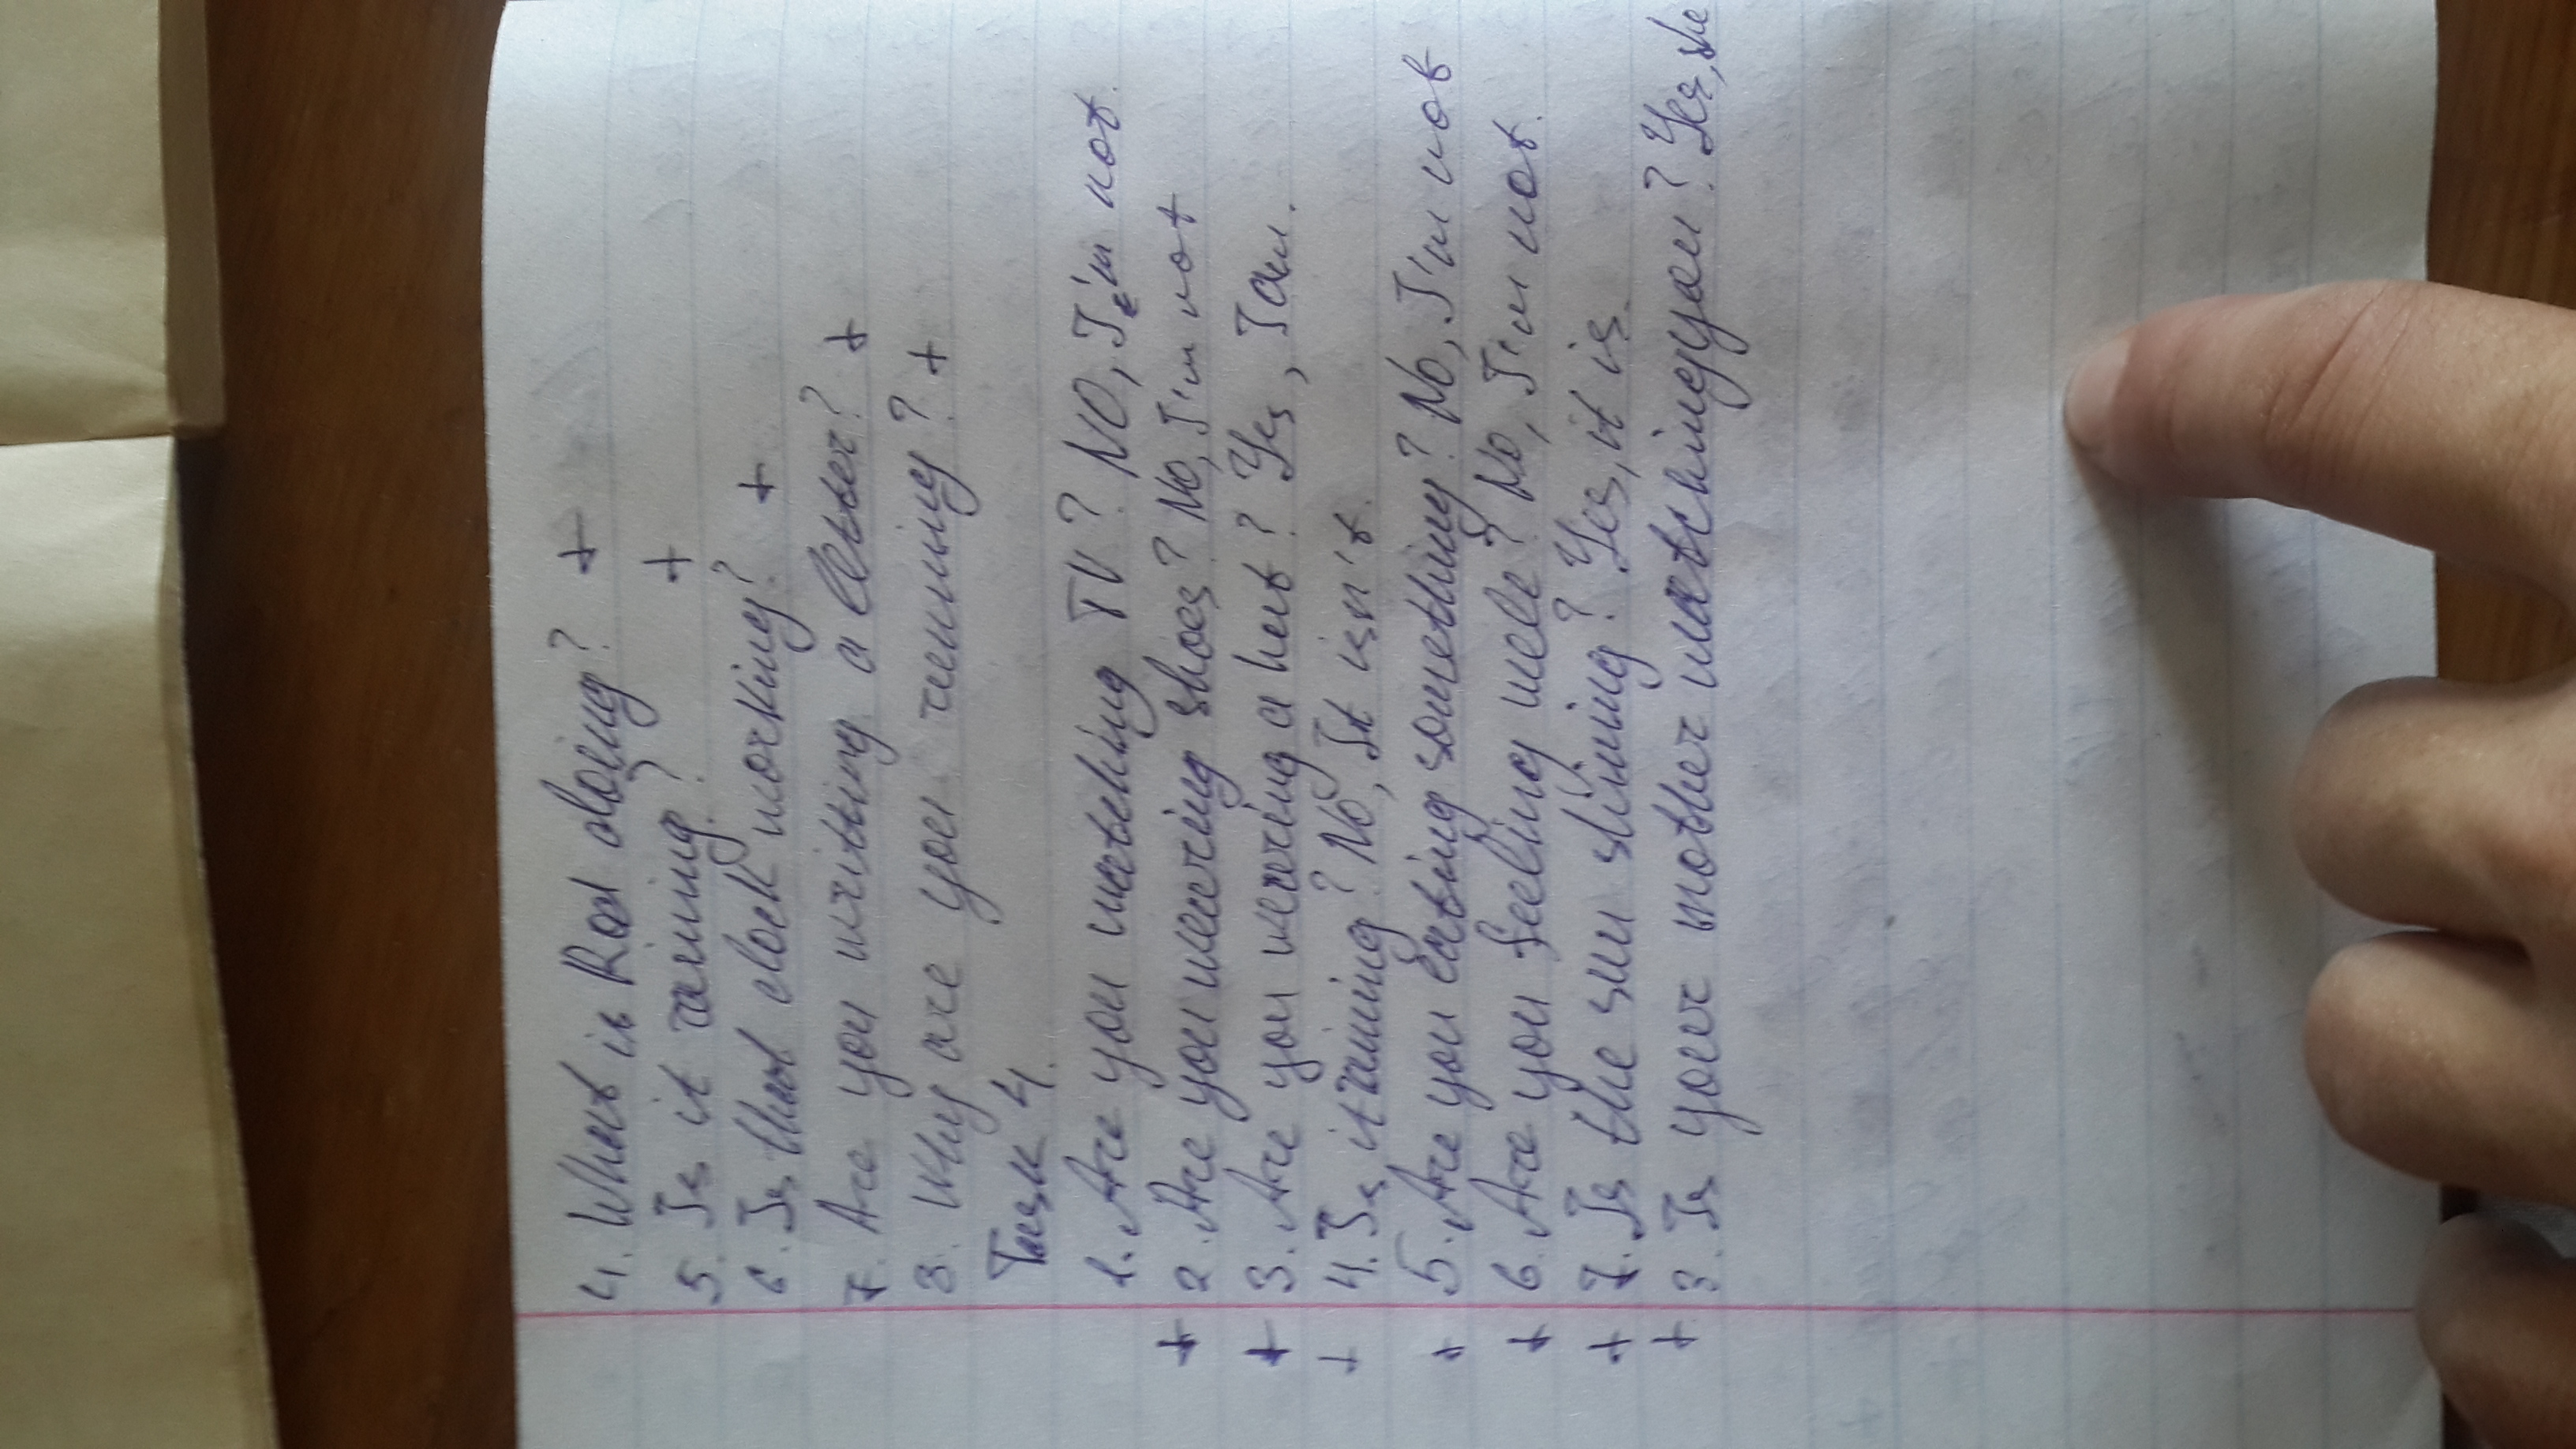 4. What is Rod doing? +
5. Is it raining? +
6. Is that clock working? +
7. Are you writting a letter? +
8. Why are you running? +
Task 4.
1. Are you watching TV? NO, I'm not.
+ 2. Are you wearing shoes? No, I'm not
+ 3. Are you wearing a hat? Yes, I am.
+ 4. Is it raining? No, It isn't.
+ 5. Are you eating something? No, I'm not
+ 6. Are you feeling well? No, I'm not.
+ 7. Is the sun shining? Yes, it is.
+ 8. Is your mother watching you? Yes, she